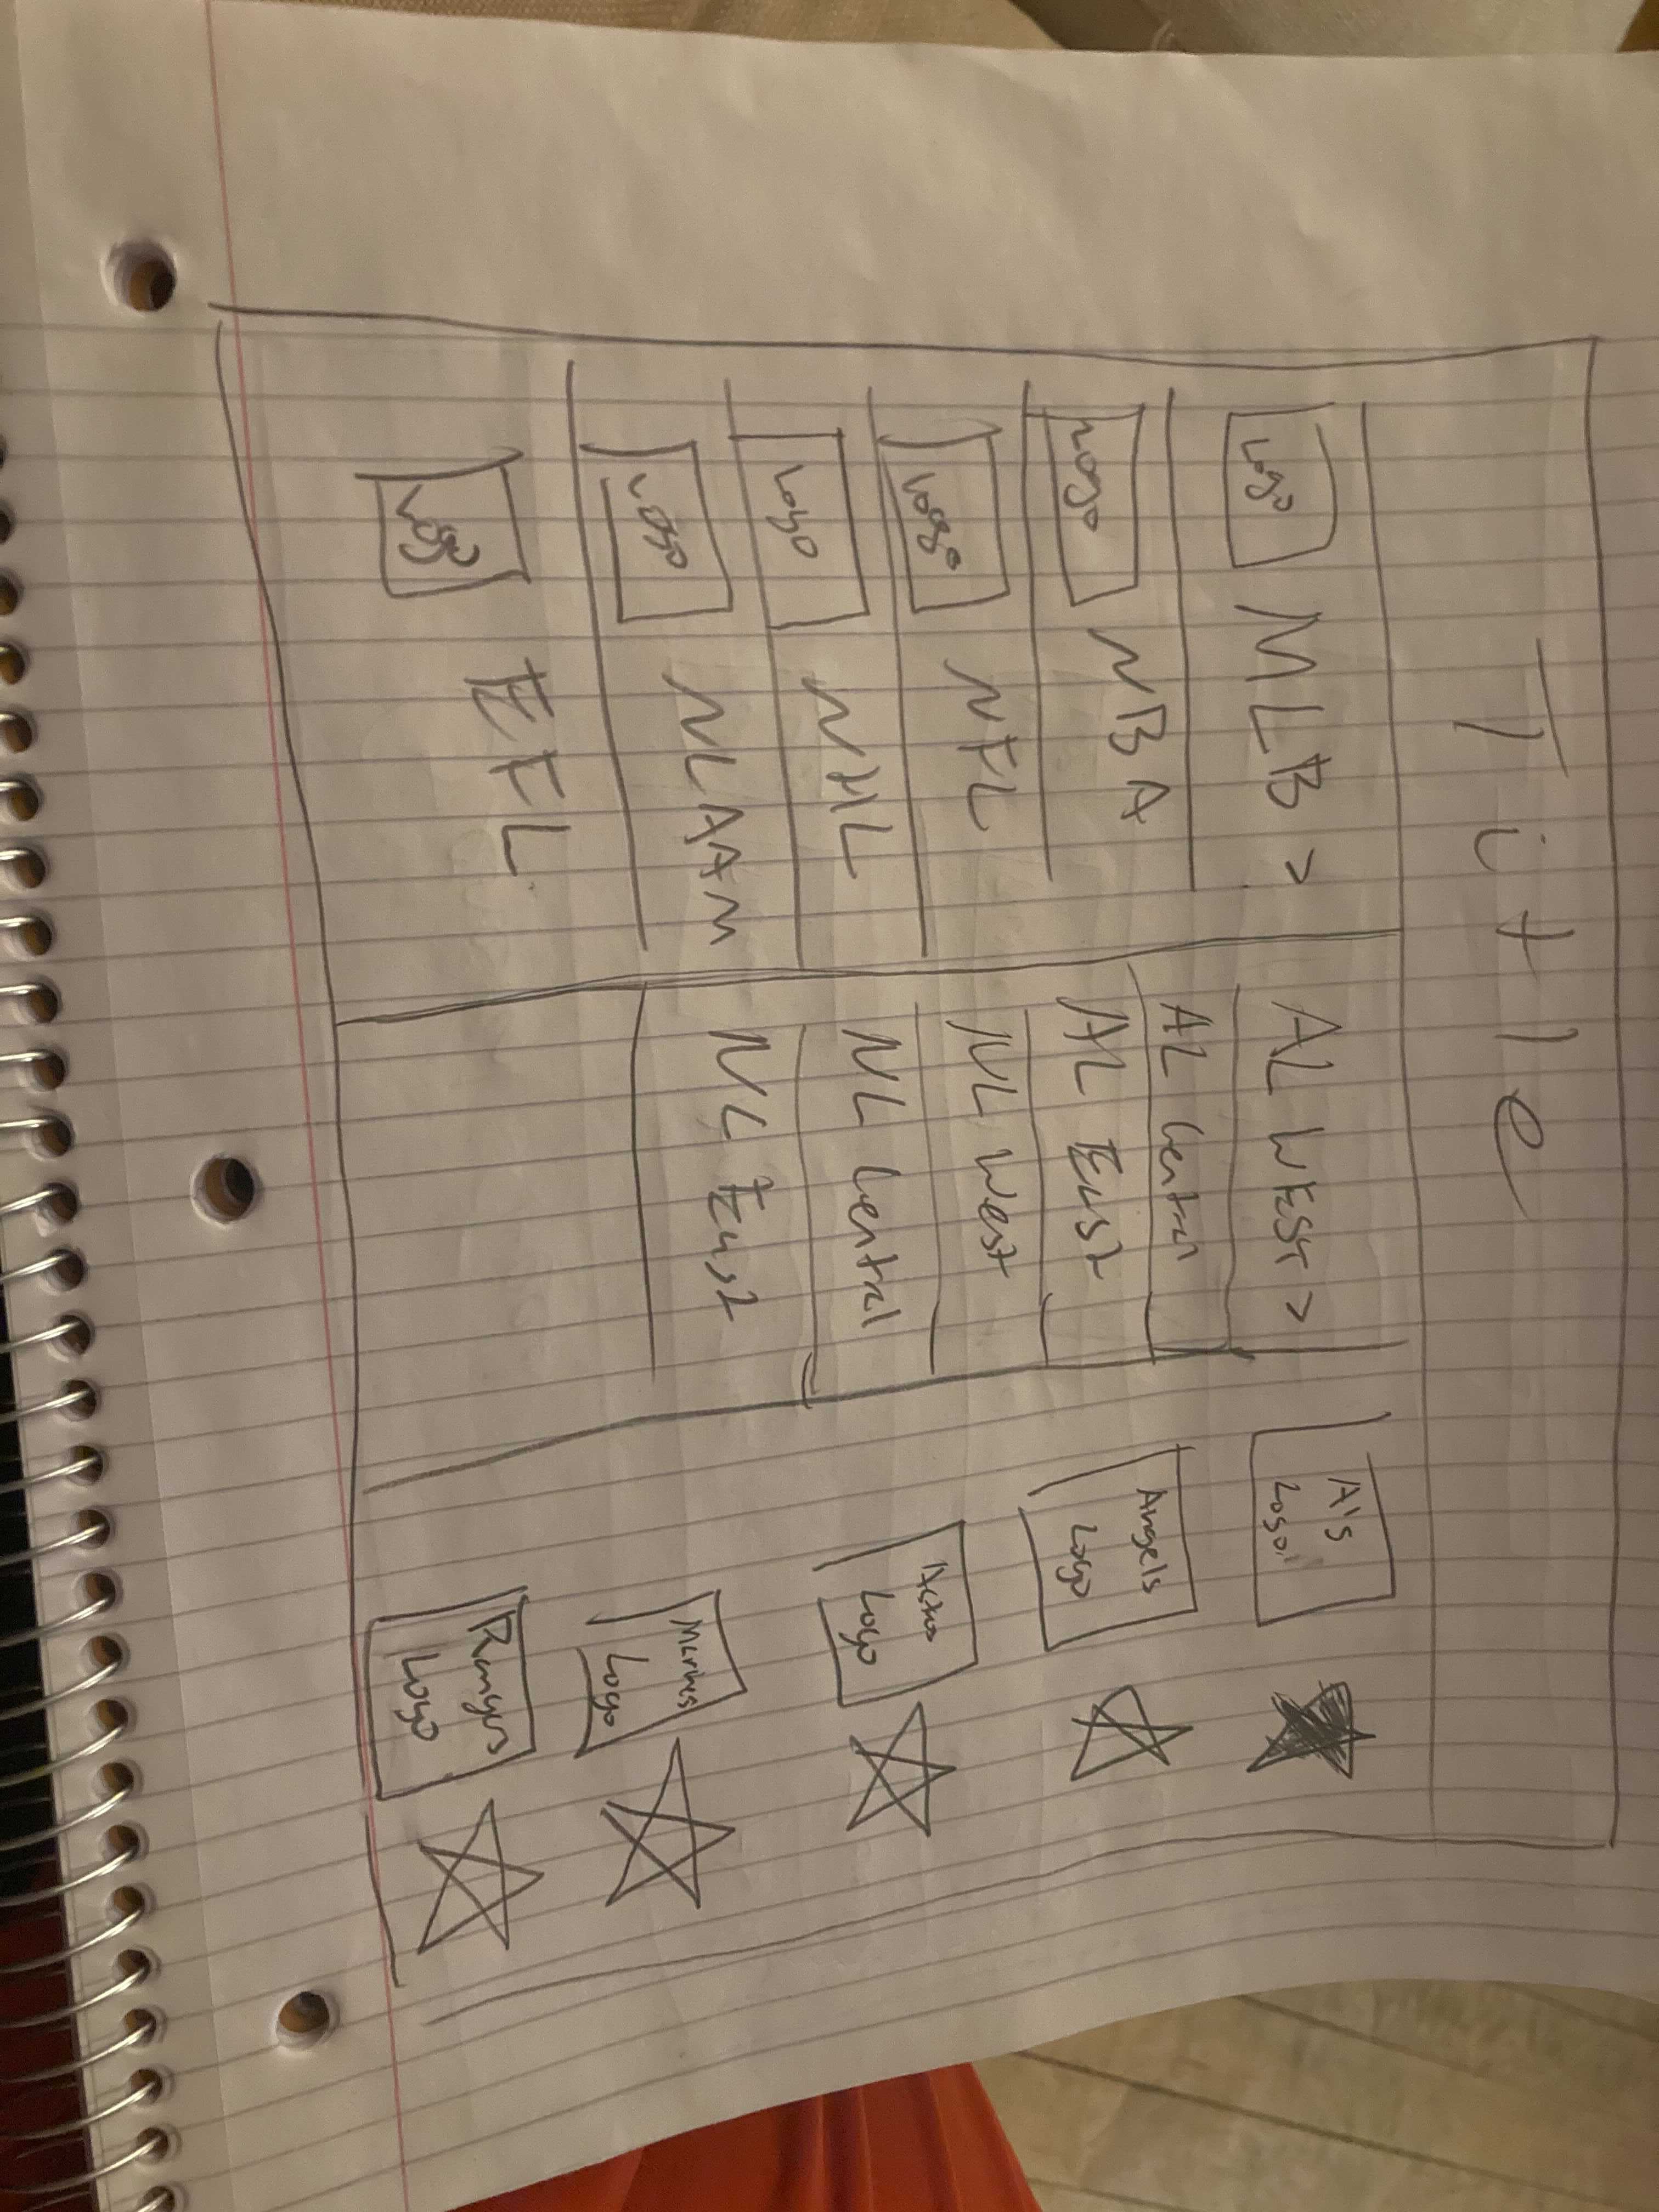 Title
Logo MLB >
Logo NBA
Logo NFL
Logo NHL
Logo NCAAM
Logo EFL
AL WEST >
AL Central
AL East
NL West
NL Central
NL East
A's
Logo
Angels
Logo
Astros
Logo
Mariners
Logo
Rangers
Logo